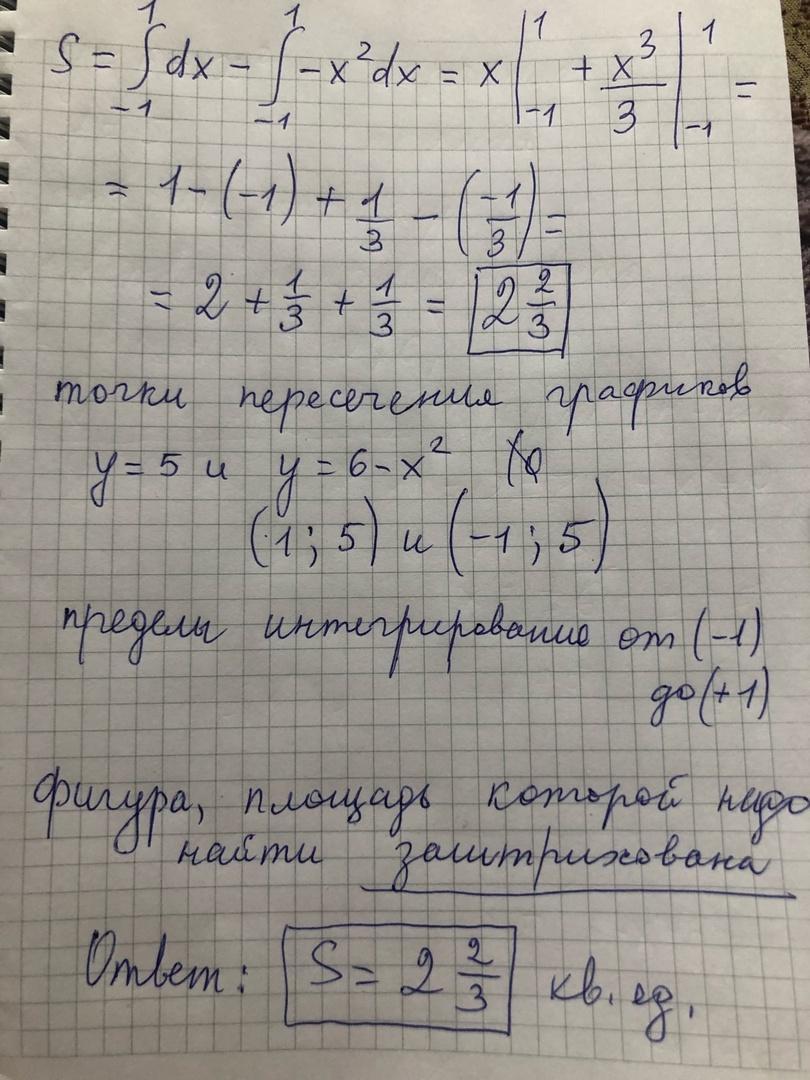 S = ∫₋₁¹ dx − ∫₋₁¹ −x²dx = x |₋₁¹ + x³/3 |₋₁¹ =
= 1 − (−1) + 1/3 − (−1/3) =
= 2 + 1/3 + 1/3 = 2 2/3
точки пересечения графиков
y = 5 и y = 6 − x²
(1; 5) и (−1; 5)
пределы интегрирование от (−1)
до (+1)
фигура, площадь которой надо
найти заштрихована
Ответ: S = 2 2/3 кв. ед.